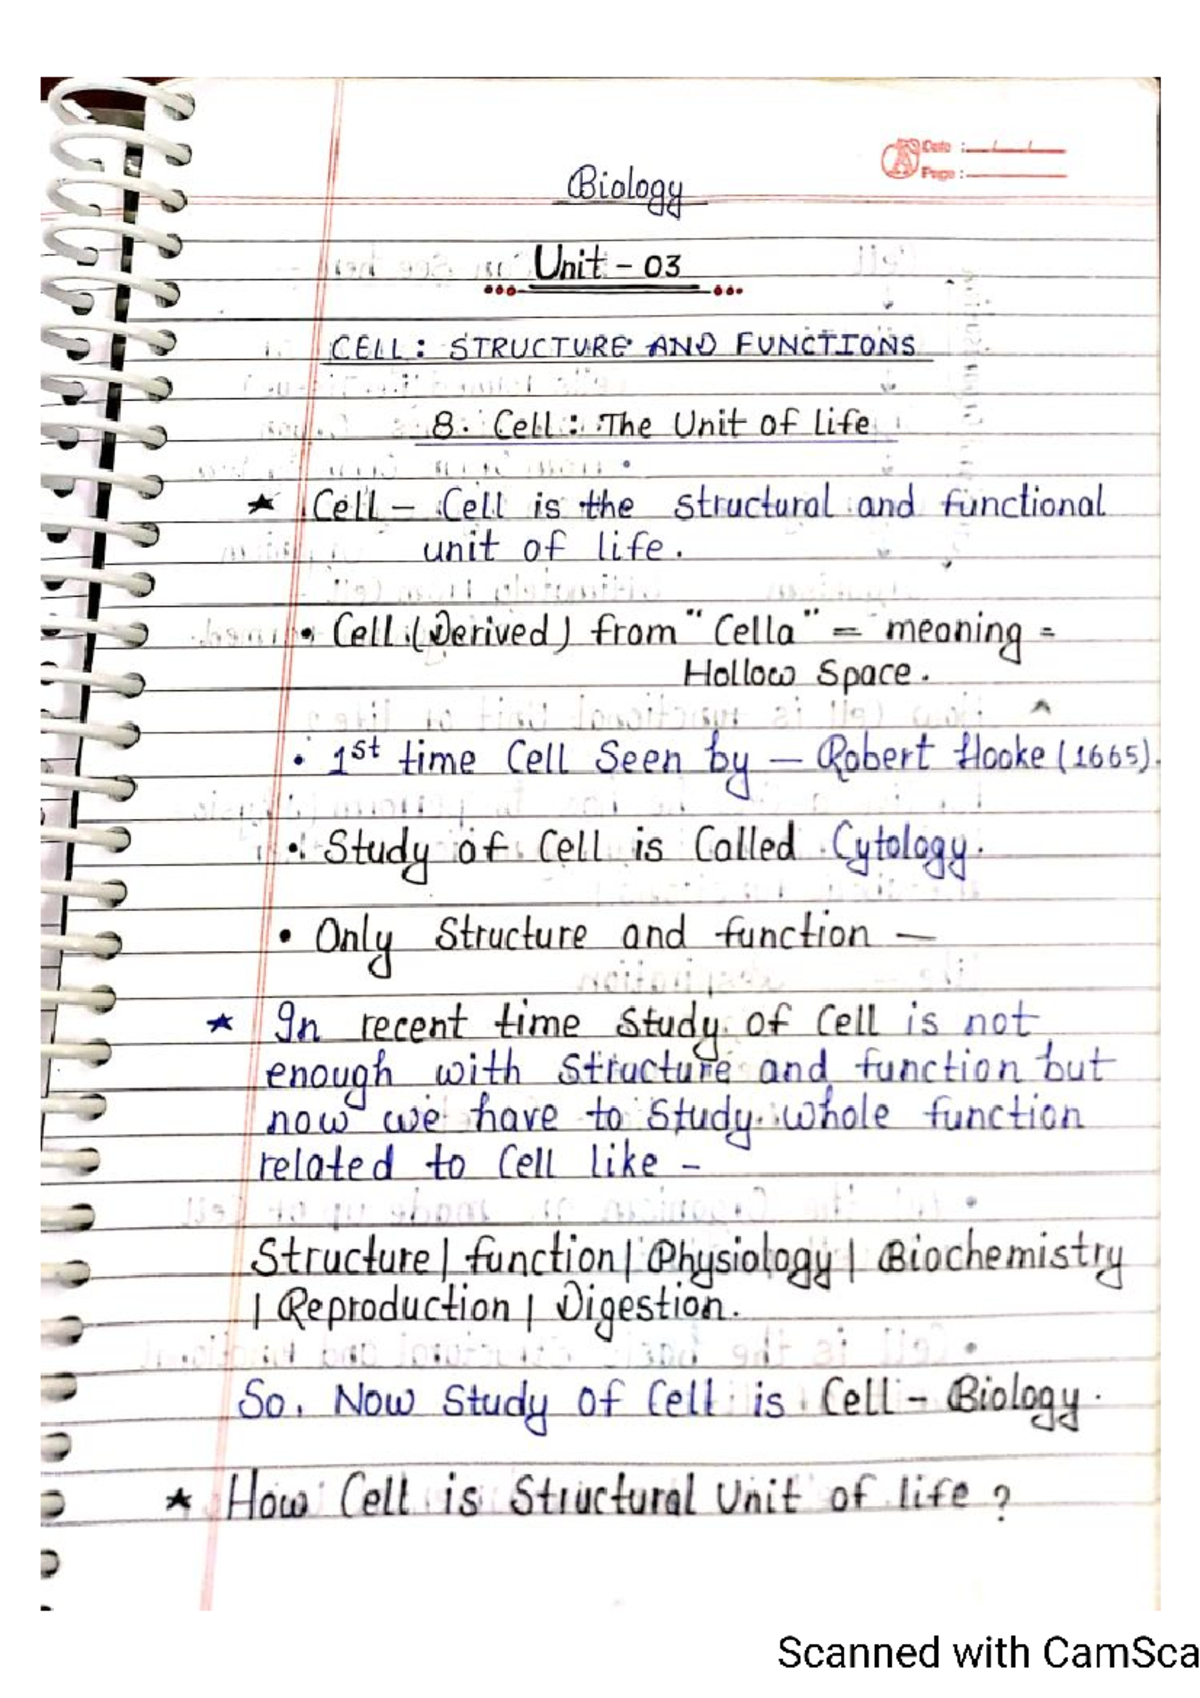 Date :
Page :
Biology
Unit - 03
CELL : STRUCTURE AND FUNCTIONS
8. Cell : The Unit of life
★ Cell – Cell is the structural and functional
unit of life.
• Cell (Derived) from "Cella" = meaning =
Hollow Space.
• 1st time Cell Seen by – Robert Hooke (1665).
• Study of Cell is Called Cytology.
• Only Structure and function –
★ In recent time Study of Cell is not
enough with Structure and function but
now we have to Study whole function
related to Cell like –
Structure | function | Physiology | Biochemistry
| Reproduction | Digestion.
So, Now Study of Cell is Cell - Biology.
★ How Cell is Structural Unit of life ?
Scanned with CamSca